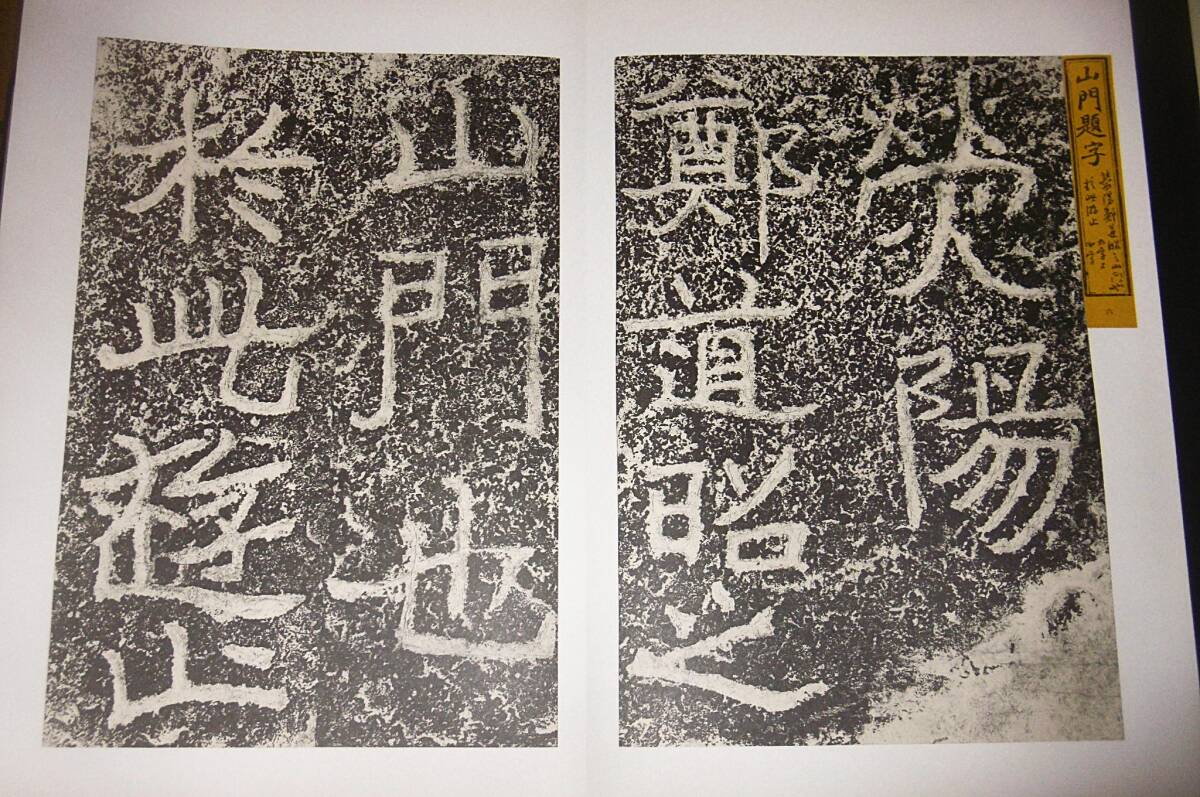 山門題字
熒陽
鄭道昭之
山門也
於此遊止